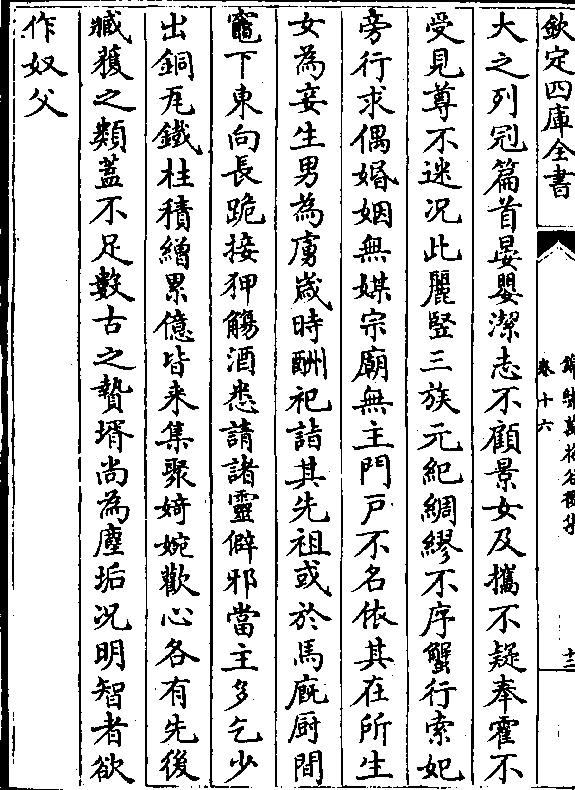 欽定四庫全書
卷十六
大之列冠篇首晏嬰潔志不顧景女及攜不疑奉霍不
受見尊不迷况此麗豎三族元紀綢繆不序蟹行索妃
旁行求偶婚姻無媒宗廟無主門戸不名依其在所生
女為妾生男為虜歲時酬祀詣其先祖或於馬廐厨間
竈下東向長跪接狎觴酒悉請諸靈僻邪當主多乞少
出銅瓦鐵柱積繒累億皆来集聚婍婉歡心各有先後
臧獲之類蓋不足數古之贅壻尚為塵垢况明智者欲
作奴父